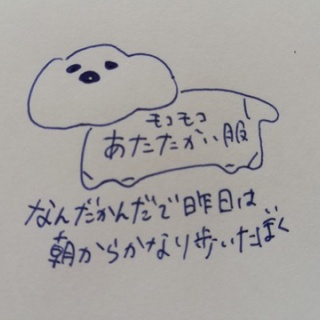 モコモコ
あたたかい服
なんだかんだで昨日は
朝からかなり歩いたぼく